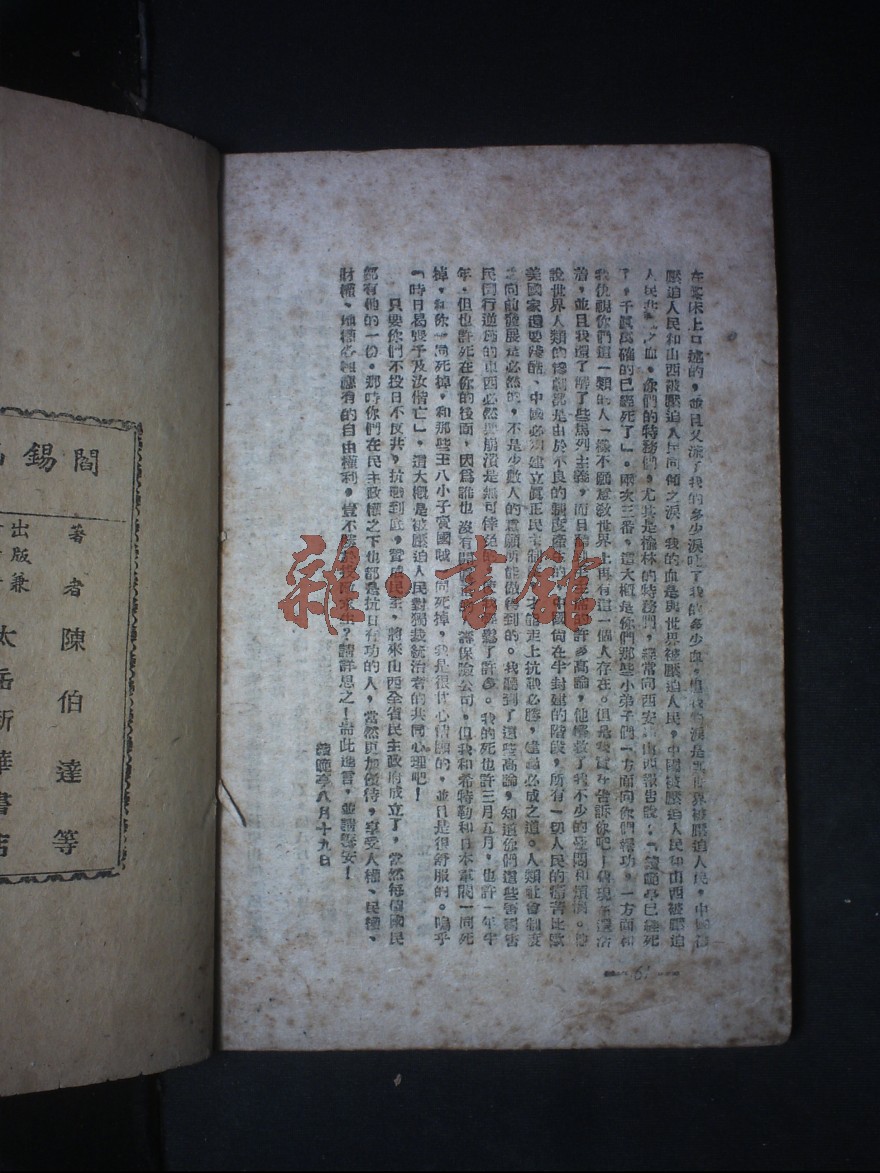 在臥床上口述的，並且又流了我的多少淚，吐了我的多少血，但我的淚是與世界被壓迫人民，中國被
壓迫人民和山西被壓迫人民同傾之淚，我的血是與世界被壓迫人民，中國被壓迫人民和山西被壓迫
人民之血。你們的特務們，尤其是榆林的特務們，經常向西安、山西報告說：「續範亭已經死
了，千眞萬確的已經死了」。兩次三番，這大概是你們那些小弟子們一方面向你們報功，一方面和
我仇視你們這一類的人一樣不願意敎世界上再有這一個人存在。但是我實在告訴你吧！續現在還活
着，並且我還了解了些馬列主義，而且聽了的許多高論，他解救了我不少的苦悶和煩惱。
說世界人類的慘劇都是由於不良的制度產生的，中國尙在半封建的階段，所有一切人民的痛苦比歐
美國家還要殘酷、中國必須建立眞正民主制度才能走上抗戰必勝，建國必成之道。人類社會制度
之向前發展是必然的，不是少數人的意願所能做得到的。我聽到了這些高論，知道你們這些害國害
民倒行逆施的東西必然要崩潰是無可倖免的，使我輕鬆了許多。我的死也許三月五月，也許一年半
年，但也許死在你的後面，因爲誰也沒有閻王的壽保險公司，但我和希特勒和日本軍閥一同死
掉，和你一同死掉，和那些王八小子賣國賊一同死掉，我是很甘心情願的，並且是很舒服的。嗚乎
「時日曷喪予及汝偕亡」，這大概是被壓迫人民對獨裁統治者的共同心理吧！
只要你們不投日不反共，抗戰到底，實成民主，將來山西全省民主政府成立了，當然每個國民
都有他的一份。那時你們在民主政權之下也都是抗日有功的人，當然更加優待，享受人權、民權、
財權、地權各種應有的自由權利。豈不勝於投敵求生？請詳思之！耑此進言，並請籌安！
續範亭八月十九日
61
閻錫
著者陳伯達等
出版兼
太岳新華書店
雜·書館